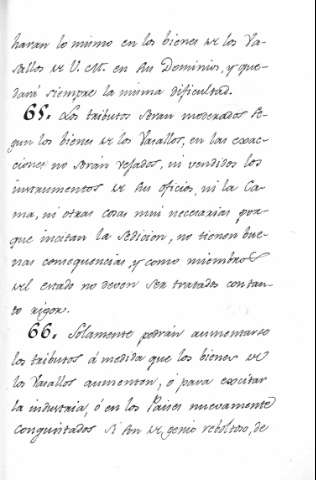 haran lo mismo en los bienes de los Va-
sallos de V. M. en su Dominio, y que-
dará siempre la misma dificultad.
65. Los tributos seran moderados se-
gun los bienes de los Vasallos, en las exac-
ciones no serán vejados, ni vendidos los
instrumentos de su oficio, ni la Ca-
ma, ni otras cosas mui necesarias por-
que incitan la sedicion, no tienen bue-
nas consequencias, y como miembros
del estado no deven ser tratados con tan-
to rigor.
66. Solamente podrán aumentarse
los tributos á medida que los bienes de
los Vasallos aumenten, ó para excitar
la industria, ó en los Paises nuevamente
conquistados si son de genio reboltoso, de